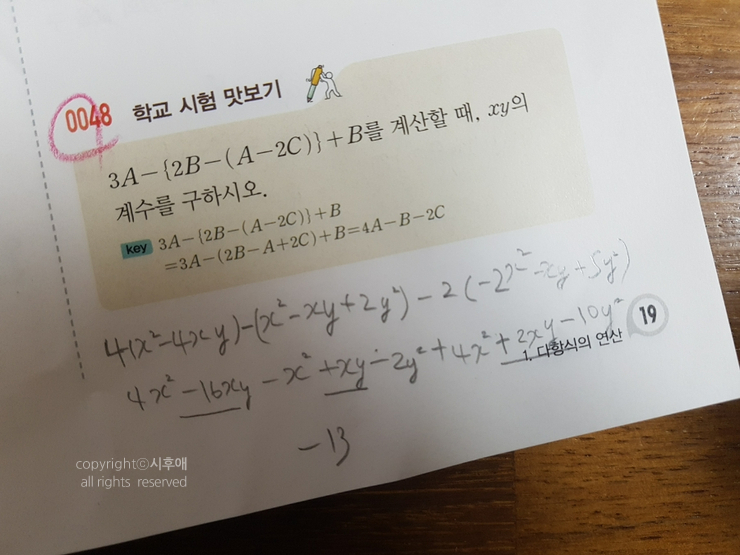 0048 학교 시험 맛보기
3A−{2B−(A−2C)}+B를 계산할 때, xy의
계수를 구하시오.
key 3A−{2B−(A−2C)}+B
=3A−(2B−A+2C)+B=4A−B−2C
4(x²−4xy)−(x²−xy+2y²)−2(−2x²−xy+5y²)
4x²−16xy−x²+xy−2y²+4x²+2xy−10y²
−13
1. 다항식의 연산 19
copyrightⓒ시후애
all rights reserved